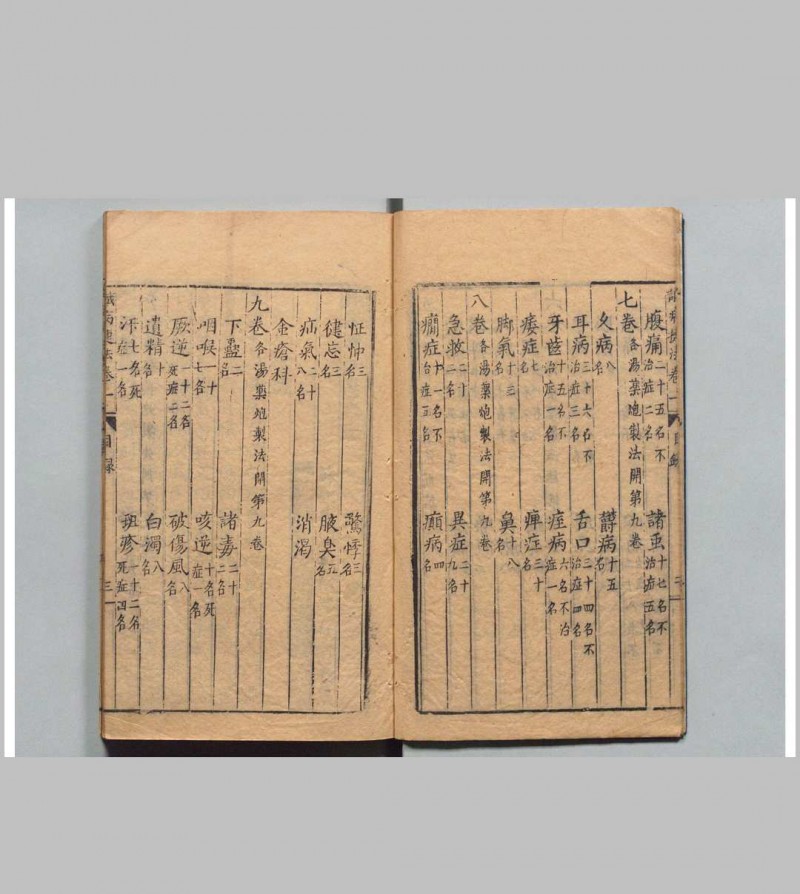 腹痛二十五名不治症二名 諸虫十七名不治症五名
七卷各湯藥炮製法開第九卷
久病八名 欝病十五
耳病三十六名不治症三名 舌口二十四名不治症四名
牙齒十五名不治症一名 痓病六名不治症一名
痿症七名 痺症三十名
脚氣十三名 鼻十八名
八卷各湯藥炮製法開第九卷
急救二名 異症二十九名
癎症十一名不治症五名 癲病四名
怔忡三名 驚悸三名
健忘三名 腋臭五名
疝氣二十八名 消渴
金瘡科
九卷各湯藥炮製法開第九卷
下蠱二名 諸毒二十二名
咽喉十七名 咳逆十名死症一名
厥逆二十二名死症二名 破傷風八名
遺精十名 白濁八名
汗七名死症一名 斑疹一十二名死症四名
卷一
目錄
三